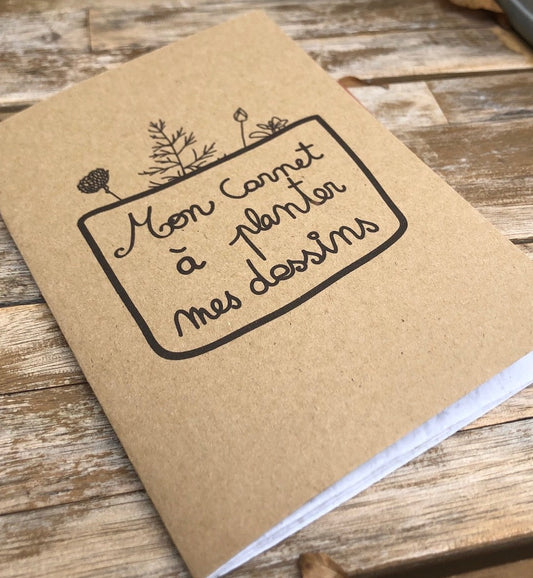 Mon Carnet
à planter
mes dessins